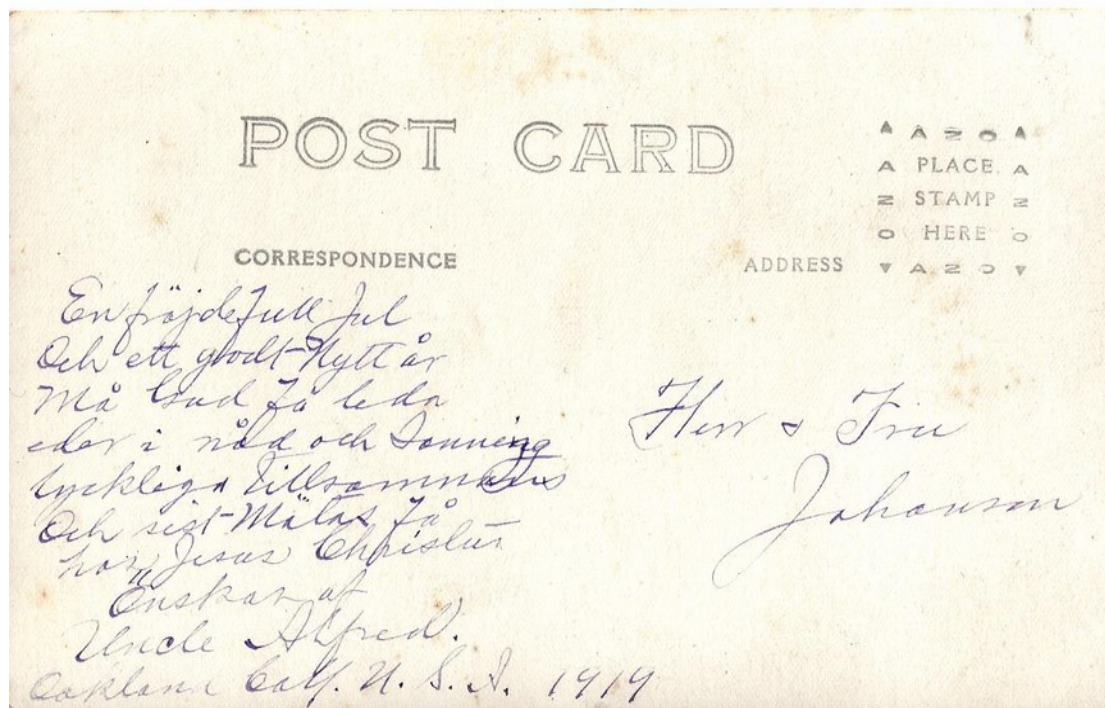 POST CARD
AZO
PLACE
STAMP
HERE
AZO
CORRESPONDENCE
ADDRESS
En fröjdefull Jul
Och ett godt Nytt år
Må Gud få leda
eder i nåd och Sanning
lyckliga Tillsammans
Och sist Mötas få
hos Jesus Christus
Önskar af
Uncle Alfred.
Oakland Calf. U. S. A. 1919
Herr & Fru
Johanson